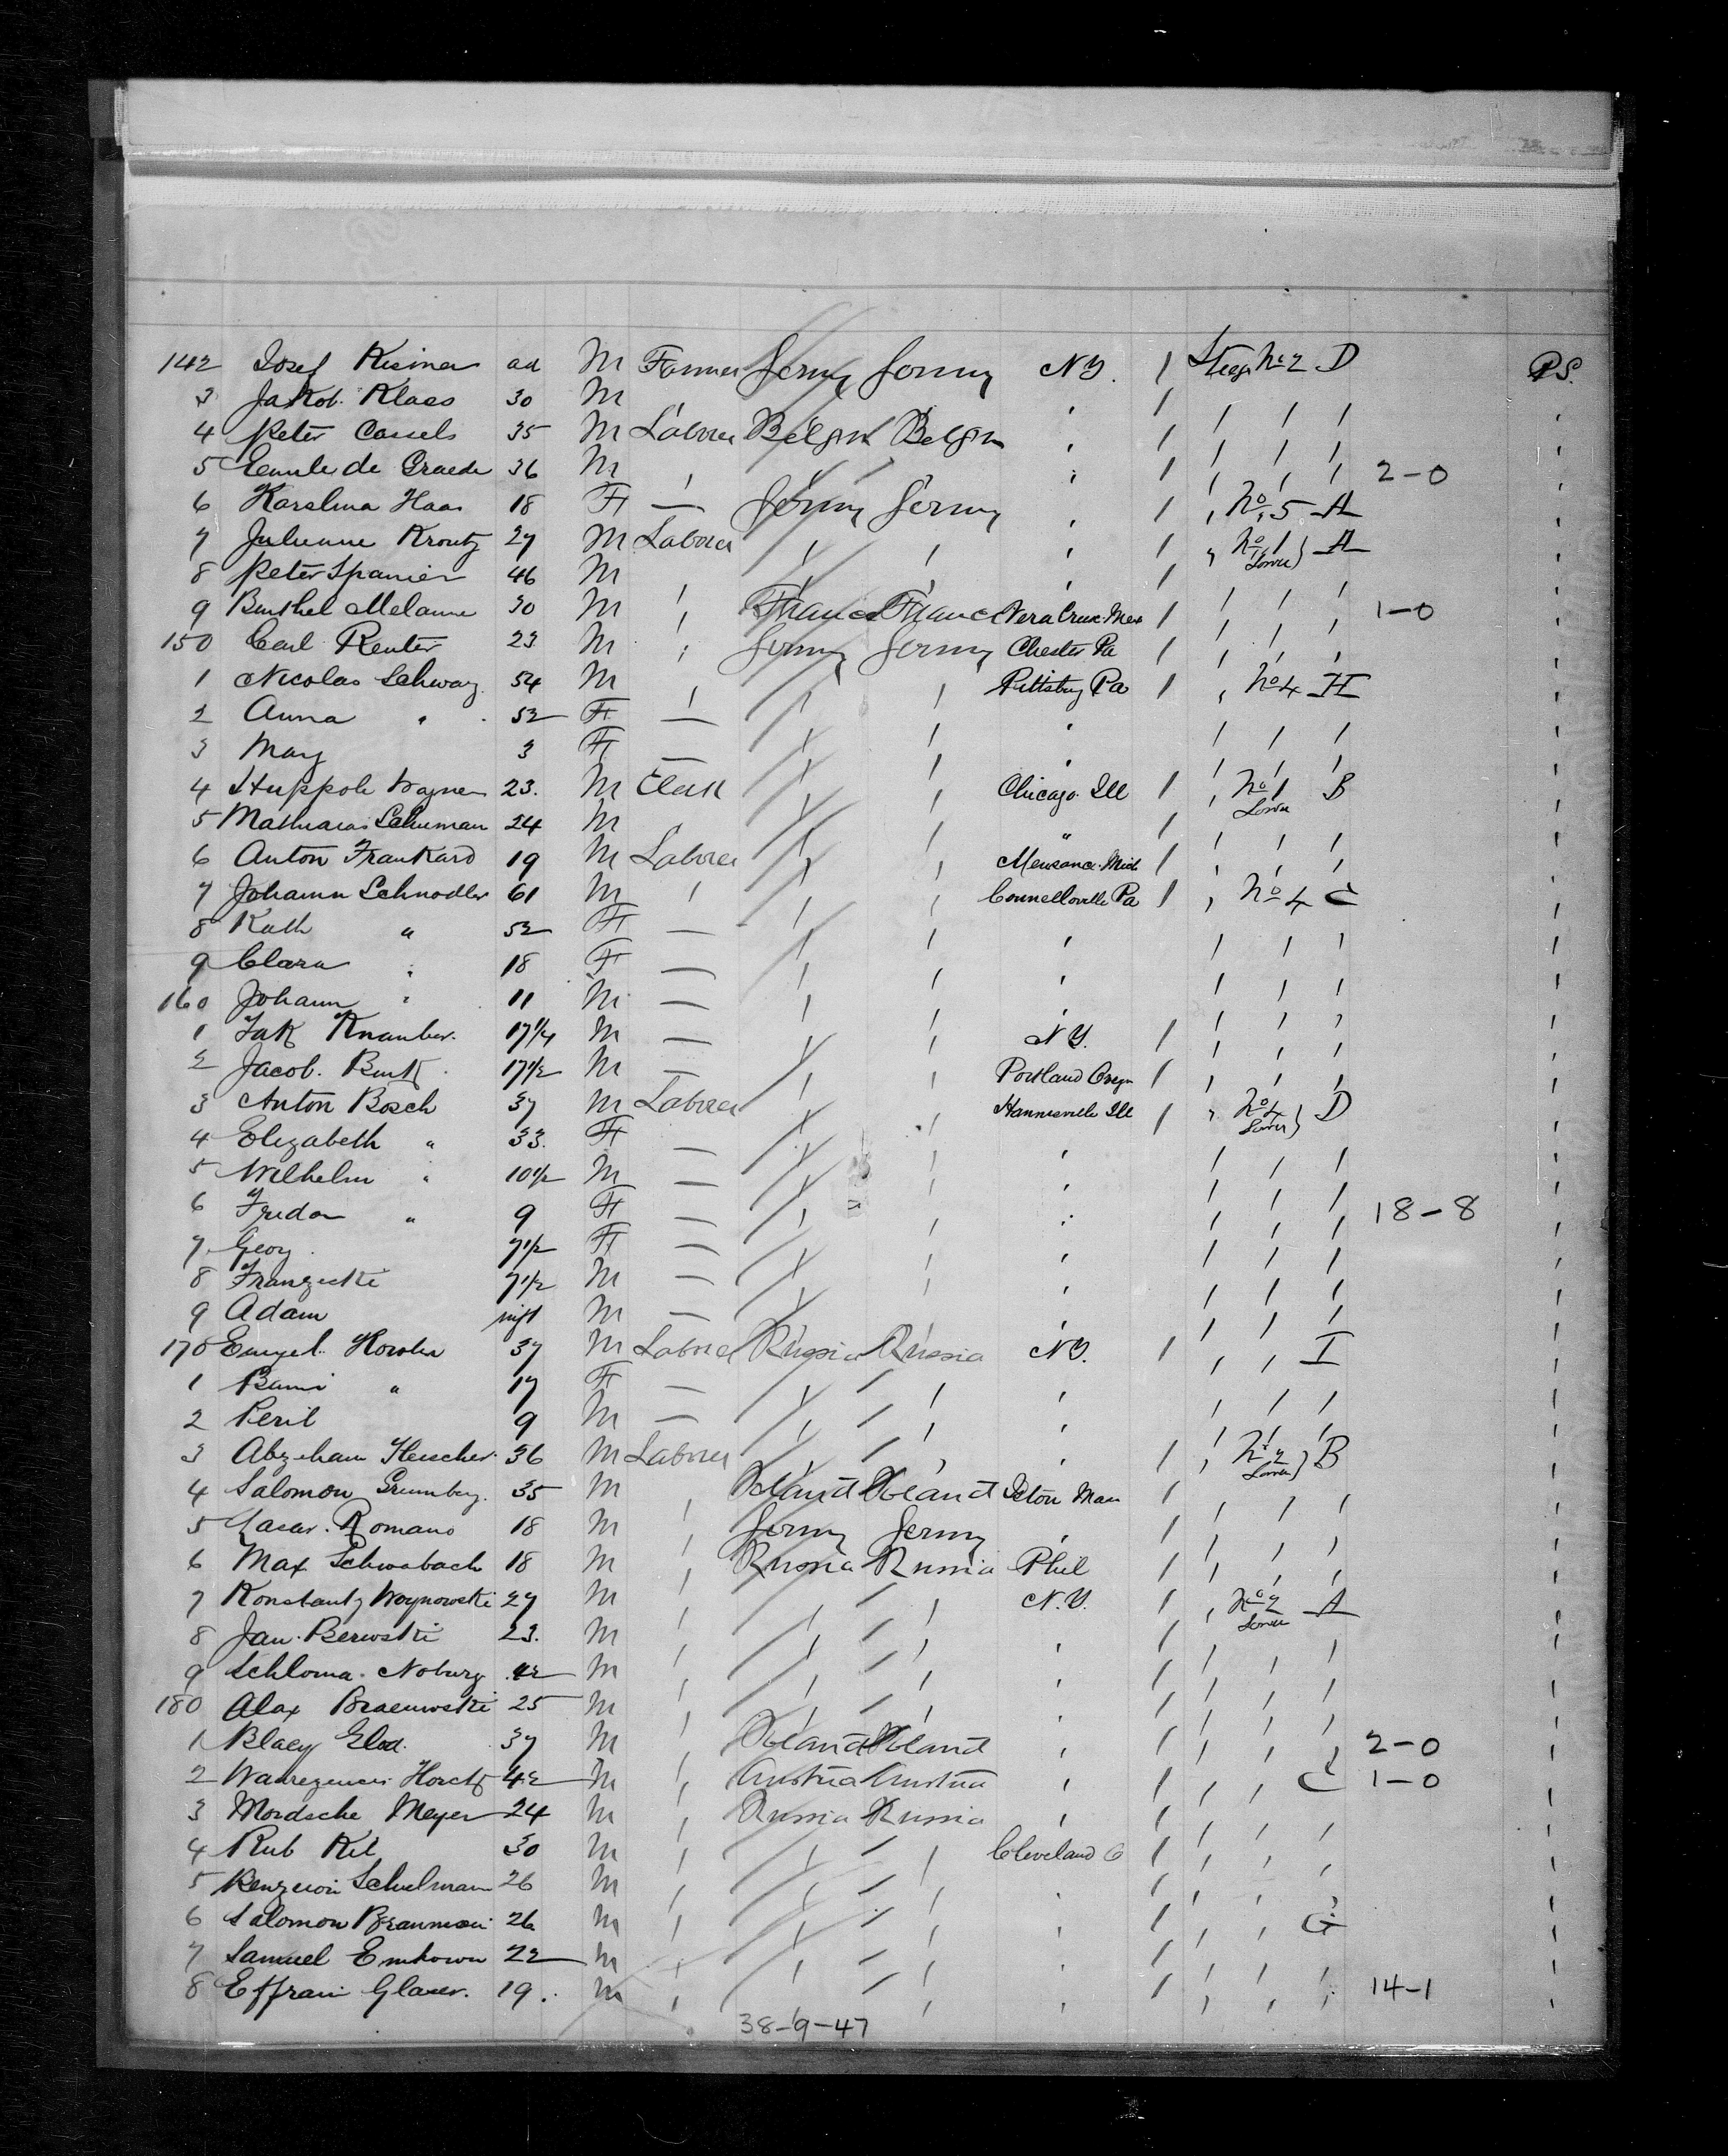 142 Josef Kisiner ad M Farmer Germy Germy N Y. 1 Steege No 2 D P.S.
3 Jakob Klaes 30 M ' ' ' ' 1 ' ' '
4 Peter Cassels 35 M Laborer Belgm Belgm ' 1 ' ' '
5 Emile de Graede 36 M ' ' ' ' 1 ' ' ' 2-0
6 Karolina Haas 18 F — Germy Germy ' 1 ' No 5 A
7 Julienne Kroutz 27 M Laborer ' ' ' 1 " No 1 Lower } A
8 Peter Spanier 46 M ' ' ' ' 1 ' ' '
9 Burthel Melanie 30 M ' France France Vera Cruz Mex 1 ' ' ' 1-0
150 Carl Reuter 23 M ' Germy Germy Chester Pa 1 ' ' '
1 Nicolas Schwarz 54 M ' ' ' Pittsburg Pa 1 ' No 4 H
2 Anna " 52 F — ' ' ' ' ' '
3 Mary 3 F — ' ' ' ' ' '
4 Wagner 23. M Clerk ' ' Chicago Ill 1 ' No 1 Lower B
5 Mathias Schuman 24 M ' ' ' " 1 ' ' '
6 Anton Frankard 19 M Laborer ' ' Mich 1 ' ' '
7 Johann Schnodler 61 M ' ' ' Connellsville Pa 1 ' No 4 C
8 Kath " 52 F — ' ' ' ' ' '
9 Clara " 18 F — ' ' ' ' ' '
160 Johann " 11 M — ' ' ' ' ' '
1 Jak Knauber 17 1/4 M — ' ' N Y. 1 ' ' '
2 Jacob Burk 17 1/2 M — ' ' Portland Oregn 1 ' ' '
3 Anton Bosch 37 M Laborer ' ' Hannisville Ill 1 " No 4 Lower } D
4 Elizabeth " 33. F — ' ' ' ' ' '
5 Wilhelm " 10 1/2 M — ' ' ' ' ' '
6 Fridor " 9 F — ' ' ' ' ' ' 18-8
7 Georg 7 1/2 F — ' ' ' ' ' '
8 Franziski 7 1/2 M — ' ' ' ' ' '
9 Adam inft M — ' ' ' ' ' '
170 Engel 37 M Laborer Russia Russia N Y. 1 ' ' I
1 " 17 F — ' ' ' ' ' '
2 Peril 9 M — ' ' ' ' ' '
3 Abraham Fleischer 36 M Laborer ' ' ' 1 ' No 2 Lower } B
4 Salomon Grunberg 35 M ' 1 ' ' '
5 Romano 18 M ' Germy Germy ' 1 ' ' '
6 Max Schwabach 18 M ' Russia Russia Phil 1 ' ' '
7 Konstanty Woynowski 27 M ' ' ' N. Y. 1 ' No 2 Lower A
8 Jan Berwski 23. M ' ' ' ' 1 ' ' '
9 Schloma Noburg 42 M ' ' ' ' 1 ' ' '
180 Alax 25 M ' ' ' ' 1 ' ' '
1 37 M ' ' 1 ' ' ' 2-0
2 42 M ' Austria Austria ' 1 ' ' C 1-0
3 Mordsche Meyer 24 M ' Russia Russia ' 1 ' ' '
4 Rub 30 M ' ' ' Cleveland O 1 ' ' '
5 Schulman 26 M ' ' ' ' 1 ' ' '
6 Salomon 26 M ' ' ' ' 1 ' ' G
7 Samuel 22 M ' ' ' ' 1 ' ' '
8 Effraim Glaser. 19. M ' ' ' ' 1 ' ' ' 14-1
38-9-47